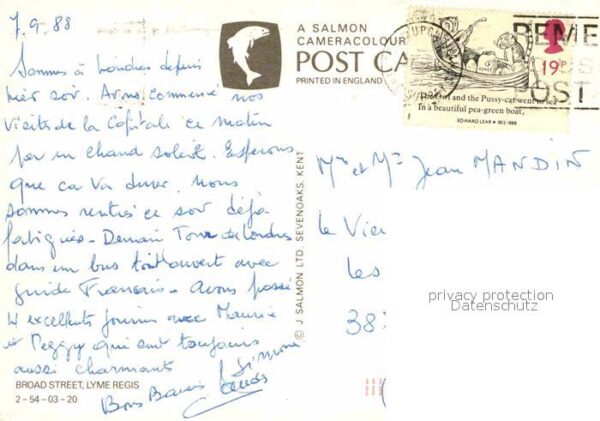 7.9.88
Sommes à Londres depuis
hier soir. Avons commencé nos
visites de la Capitale ce matin
par un chaud soleil. Espérons
que ca va durer. Nous
sommes rentrés ce soir déjà
fatigués - Demain Tour de Londres
dans un bus toit ouvert avec
guide Français - Avons passé
4 excellents journées avec Maurice
et Peggy qui sont toujours
aussi charmants
Bons Baisers Simone
BROAD STREET, LYME REGIS
2-54-03-20
A SALMON
CAMERACOLOUR
POST CA
PRINTED IN ENGLAND
© J SALMON LTD. SEVENOAKS, KENT
19P
The Owl and the Pussy-cat went to
In a beautiful pea-green boat.
EDWARD LEAR • 1812-1888
REME
POST
Mme et Mr Jean MANDIN
le Vie
les
38
privacy protection
Datenschutz